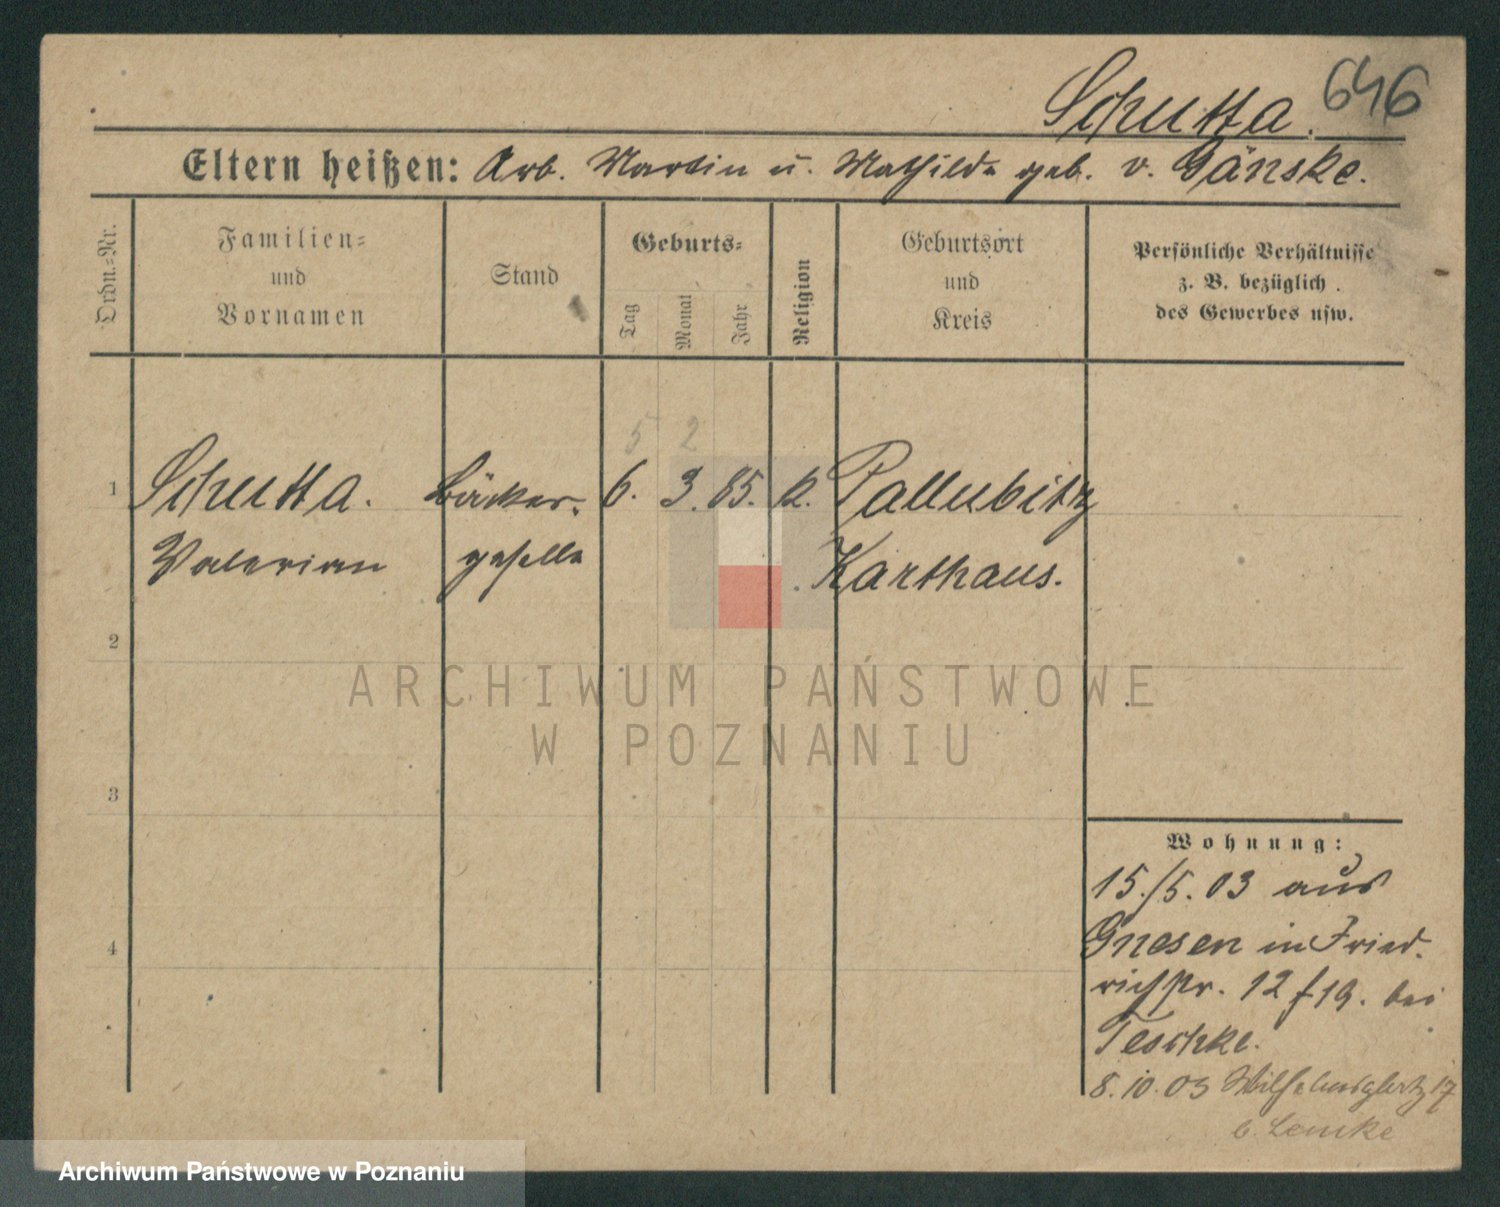 Schutta. 646
Eltern heißen: Arb. Martin u. Mathilde geb. v. Gänske.
Ordn.-Nr.
Familien-
und
Vornamen
Stand
Geburts-
Tag
Monat
Jahr
Religion
Geburtsort
und
Kreis
Persönliche Verhältnisse
z. B. bezüglich
des Gewerbes usw.
5 2
1 Schutta. Bäcker- 6. 3. 85. k. Pallubitz
Valerian geselle Karthaus.
2
3
4
ARCHIWUM PAŃSTWOWE
W POZNANIU
Wohnung:
15./5. 03 aus
Gnesen in Fried.
richstr. 12 f 19. bei
Teschke.
8.10.03 Wilhelmsplatz 17
b. Lemke
Archiwum Państwowe w Poznaniu